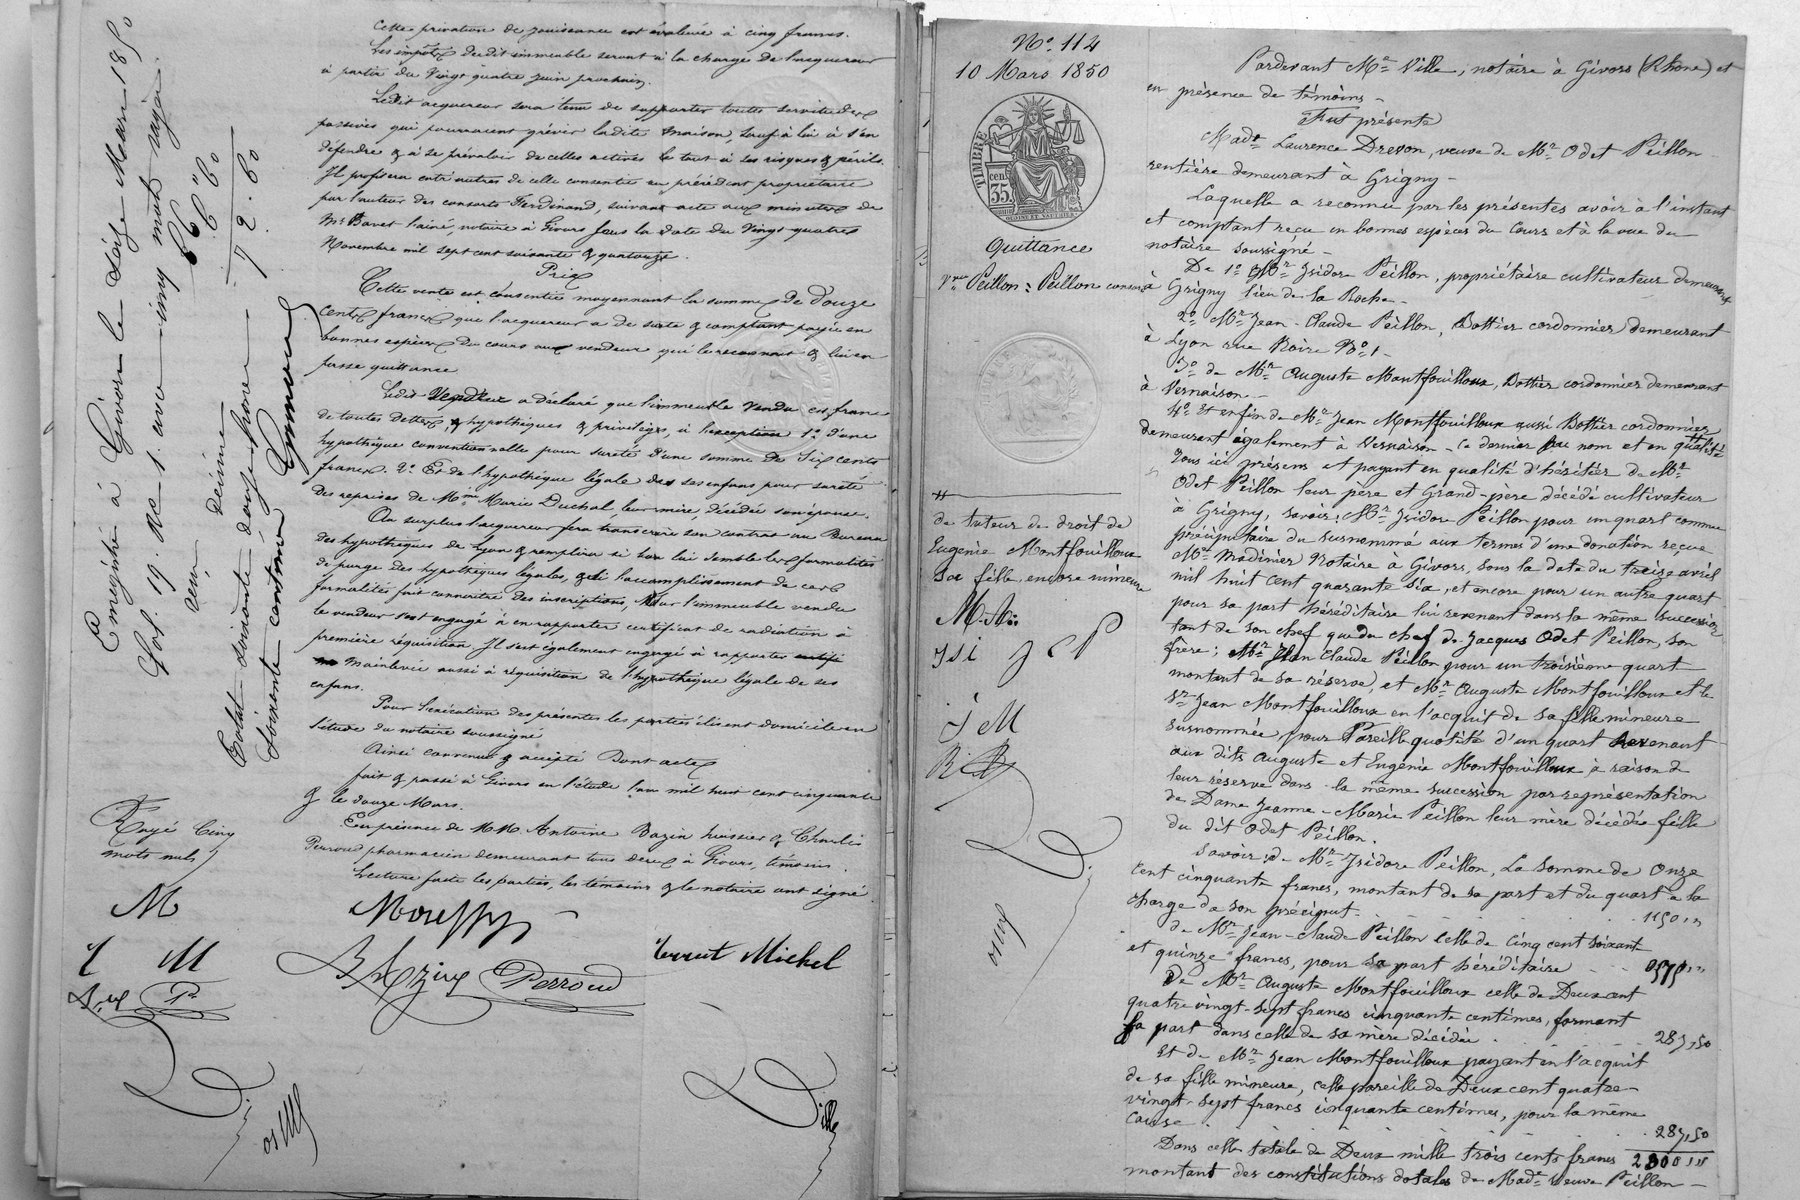 Cette privation de jouissance est évaluée à cinq francs.
Les impôts dudit immeuble seront à la charge de l'acquereur
à partir du Vingt quatre juin prochain.
Ledit acquereur sera tenu de supporter toutes servitudes
passives qui pourraient grèver ladite maison, sauf à lui à s'en
défendre & à se prévaloir de celles actives le tout à ses risques & périls.
Il profitera entr'autres de celle consentie au précédent propriétaire
par l'auteur des consorts Ferdinand, suivant acte aux minutes de
Mr. l'ainé, notaire à Givors sous la date du Vingt quatre
Novembre mil sept cent soixante & quatorze.
Prix
Cette vente est consentie moyennant la somme de Douze
cents francs que l'acquereur a de suite & comptant payée en
bonnes espèces du cours au vendeur qui le reconnait & lui en
passe quittance
Ledit Vendeur a déclaré que l'immeuble vendu est franc
de toutes dettes, hypothèques & privilèges, à l'exception 1o d'une
hypothèque conventionnelle pour sureté d'une somme de Six cents
francs. 2o Et de l'hypothèque légale de ses enfans pour sureté
des reprises de Mme Marie Duchal, leur mère, décédée son épouse.
Au surplus l'acquereur fera transcrire son contrat au Bureau
des hypothèques de Lyon & remplira si bon lui semble les formalités
de purge des hypothèques légales, & si l'accomplissement de ces
formalités fait connaitre des inscriptions, sur l'immeuble vendu
le vendeur s'est engagé à en rapporter certificat de radiation à
première réquisition Il s'est également engagé à rapporter
mainlevée aussi à réquisition de l'hypothèque légale de ses
enfans.
Pour l'exécution des présentes les parties élisent domicile en
l'étude du notaire soussigné
Ainsi convenu & accepté Dont acte
fait & passé à Givors en l'étude l'an mil huit cent cinquante
& le douze Mars.
En présence de MM Antoine Bazin huissier & Charles
Perroud pharmacien demeurant tous deux à Givors, témoins.
Lecture faite les parties, les témoins & le notaire ont signé
Enregistré à Givors le Mars 1850
fol. 19. Vc. c. 1. avec cinq mots rayés.
Reçu
décime
66 "
6. 60
72. 60
Total soixante douze francs
soixante centimes
Rayé Cinq
mots nuls
M
M
P
Perroud
Michel
Ville
No. 114
10 Mars 1850
TIMBRE
35
cen
Quittance
Vve Peillon : Peillon consorts
de tuteur de droit de
Eugénie Montfouilloux
sa fille, encore mineure
M. A.
Isi J C P
J M
Pardevant Me Ville, notaire à Givors (Rhône) et
en présence de témoins -
Fut présente
Made Laurence Drevon, veuve de Mr Odet Peillon
rentière demeurant à Grigny -
Laquelle a reconnu par les présentes avoir à l'instant
et comptant reçu en bonnes espèces du Cours et à la vue du
notaire soussigné -
De 1o Mr Isidore Peillon, propriétaire cultivateur demeurant
à Grigny lieu de la Roche -
2o Mr Jean-Claude Peillon, Bottier cordonnier demeurant
à Lyon rue Noire No 1 -
3o de Mr Auguste Montfouilloux, Bottier cordonnier demeurant
à Vernaison -
4o Et enfin de Mr Jean Montfouilloux aussi Bottier cordonnier
demeurant également à Vernaison - Ce dernier au nom et en qualité
Tous ici présens et payant en qualité d'héritiers de Mr
Odet Peillon leur père et Grand-père décédé cultivateur
à Grigny, savoir : Mr Isidore Peillon pour un quart comme
préciputaire du susnommé aux termes d'une donation reçue
Me Madinier Notaire à Givors, sous la date du treize avril
mil huit cent quarante six, et encore pour un autre quart
pour sa part héréditaire lui revenant dans la même succession
tant de son chef que du chef de Jacques Odet Peillon, son
frère ; Mr Jean Claude Peillon pour un troisième quart
montant de sa réserve, et Mr Auguste Montfouilloux et le
Sr Jean Montfouilloux en l'acquit de sa fille mineure
susnommée, pour Pareille quotité d'un quart revenant
aux dits Auguste et Eugénie Montfouilloux à raison de
leur réserve dans la même succession par représentation
de Dame Jeanne-Marie Peillon leur mère décédée fille
du dit Odet Peillon.
Savoir : de Mr Isidore Peillon, La Somme de Onze
cent cinquante francs, montant de sa part et du quart à la
charge de son préciput. 1150 "
de Mr Jean-Claude Peillon Celle de Cinq cent soixante
et quinze francs, pour sa part héréditaire 575 "
De Mr Auguste Montfouilloux celle de Deux cent
quatre vingt-sept francs cinquante centimes, formant
sa part dans celle de sa mère décédée 287,50
Et de Mr Jean Montfouilloux payant en l'acquit
de sa fille mineure, celle pareille de Deux cent quatre-
vingt-sept francs cinquante centimes, pour la même
cause 287,50
Dans celle totale de Deux mille trois cents francs 2300 "
montant des constitutions dotales de Made veuve Peillon -